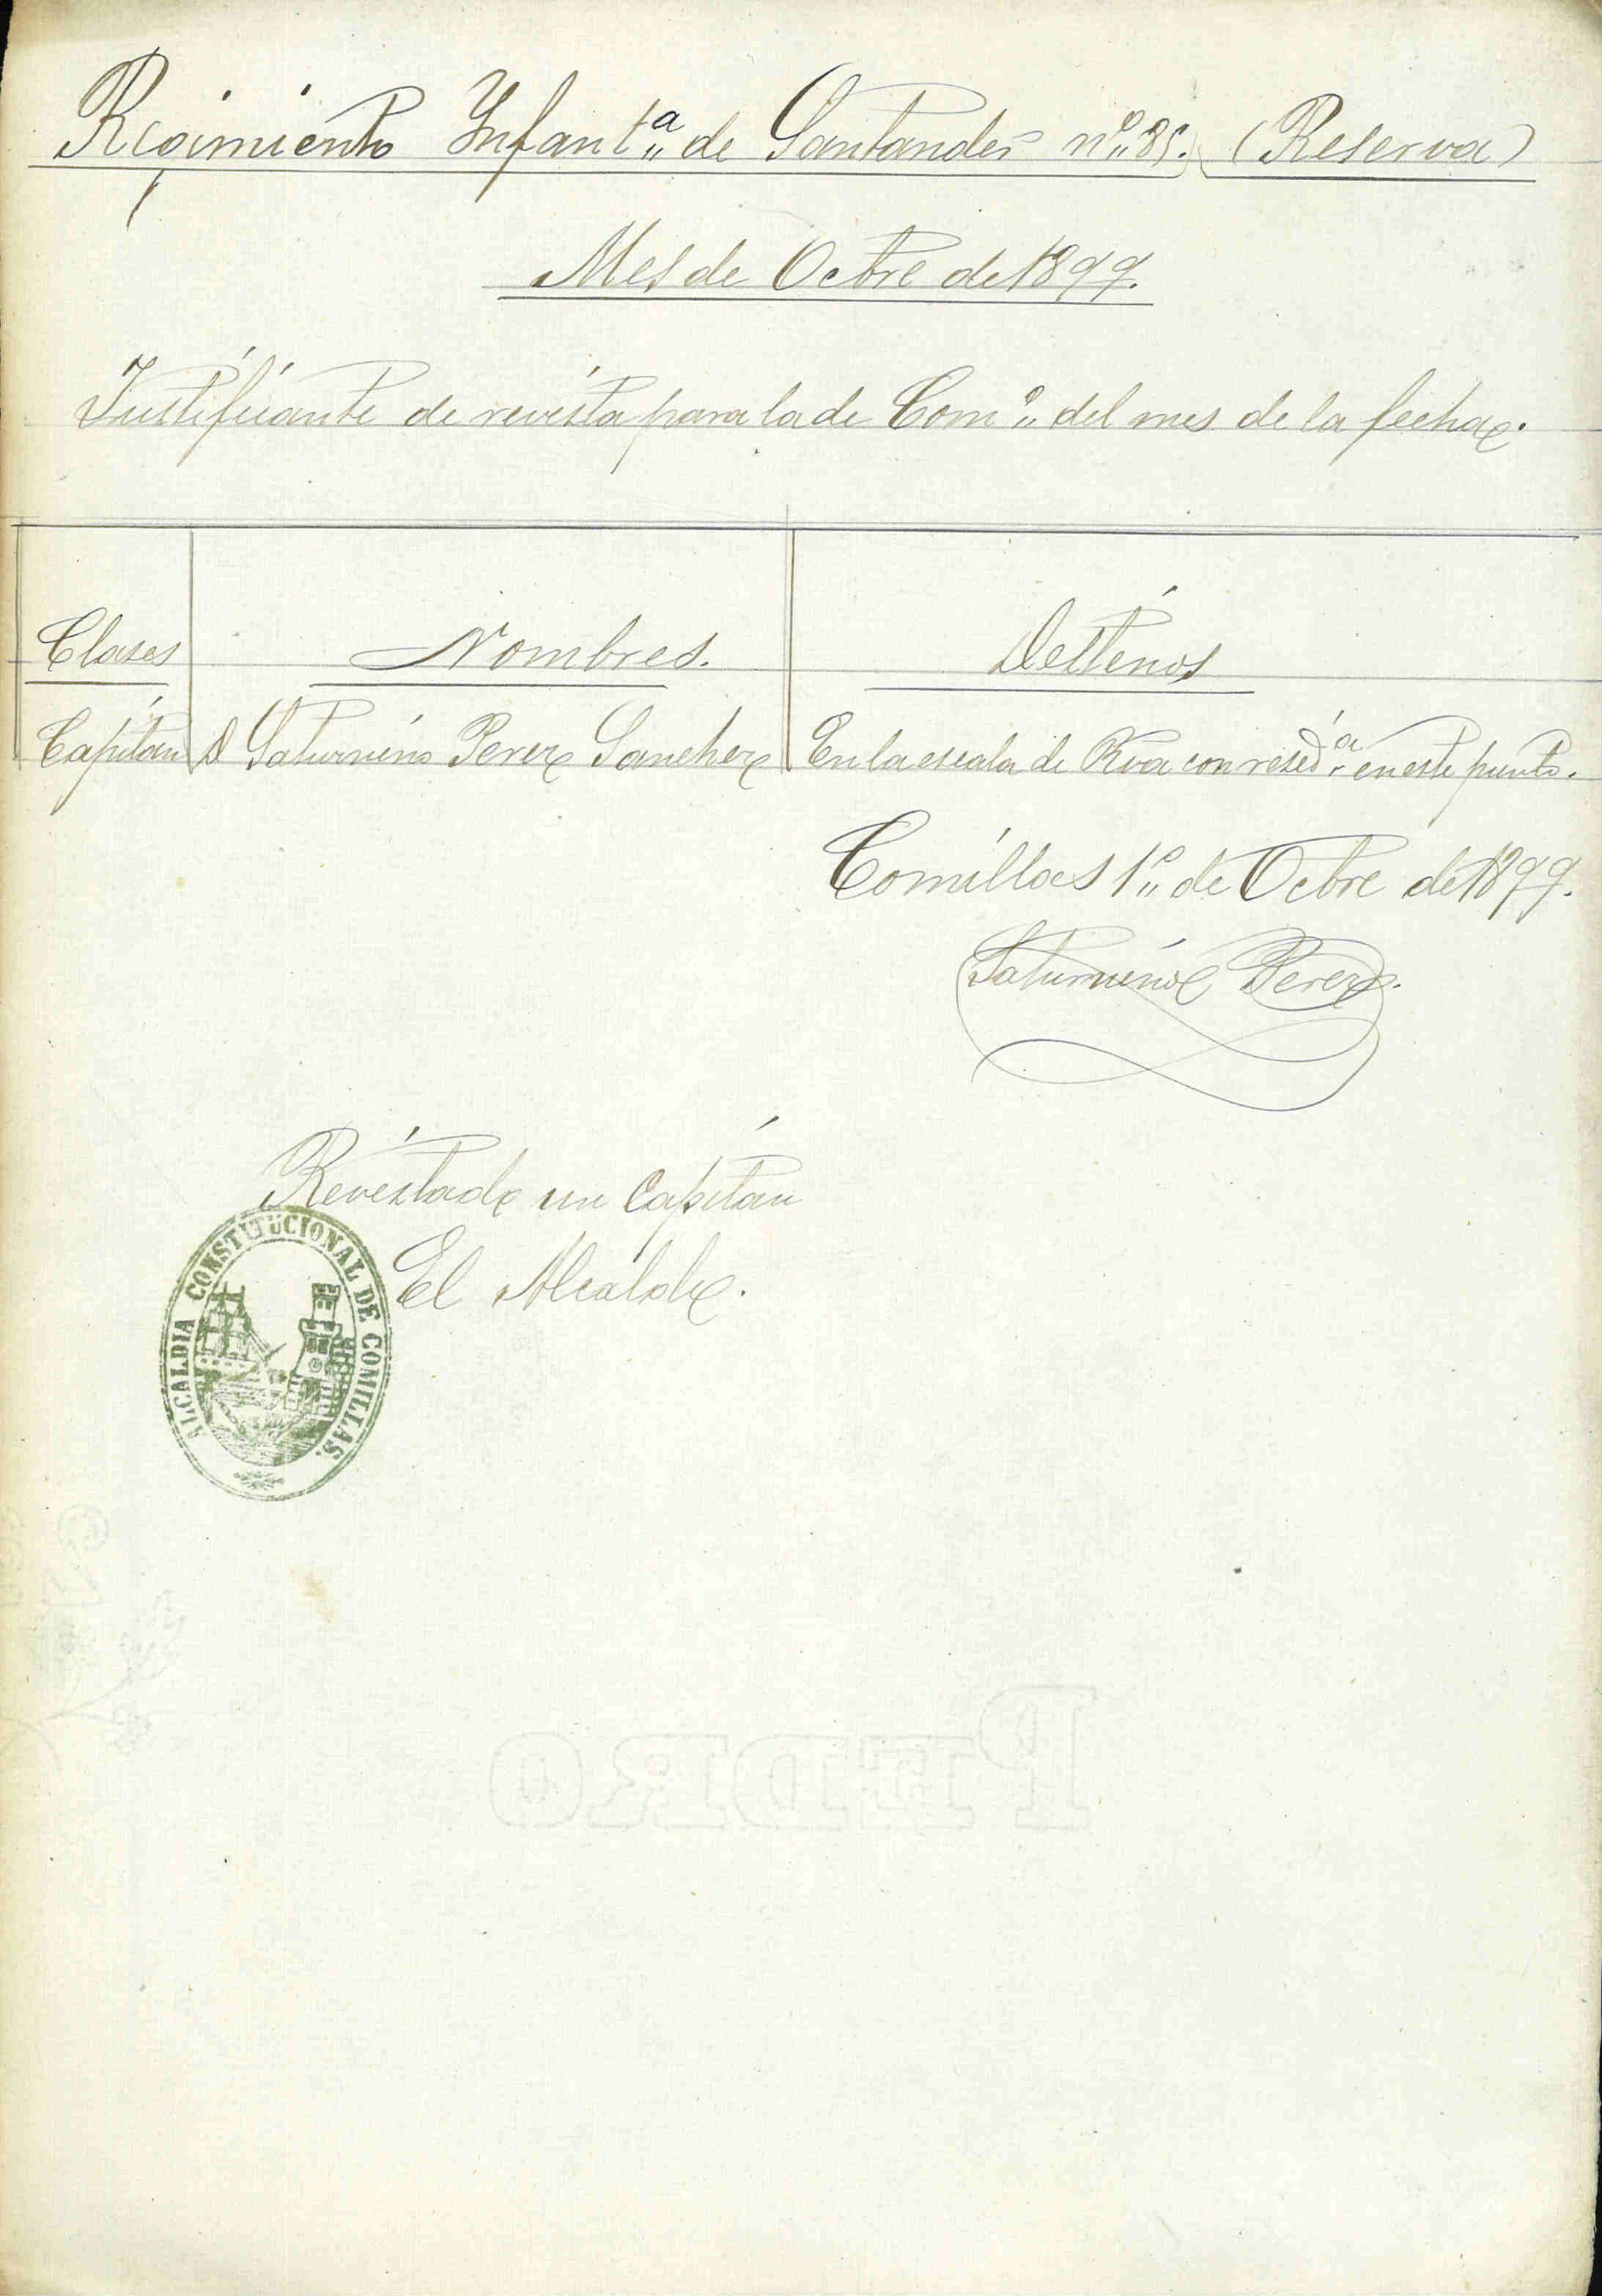 Regimiento Infantª de Santander nº 85. (Reserva)
Mes de Octbre de 1899.
Justificante de revista para la de Comº del mes de la fecha.
Clases
Nombres.
Destinos
Capitan D Saturnino Perez Sanchez En la escala de Rva con residª en este punto.
Comillas 1º de Octbre de 1899.
Saturnino Perez.
Revistado un Capitan
El Alcalde.
ALCALDIA CONSTITUCIONAL DE COMILLAS.
PEDRO